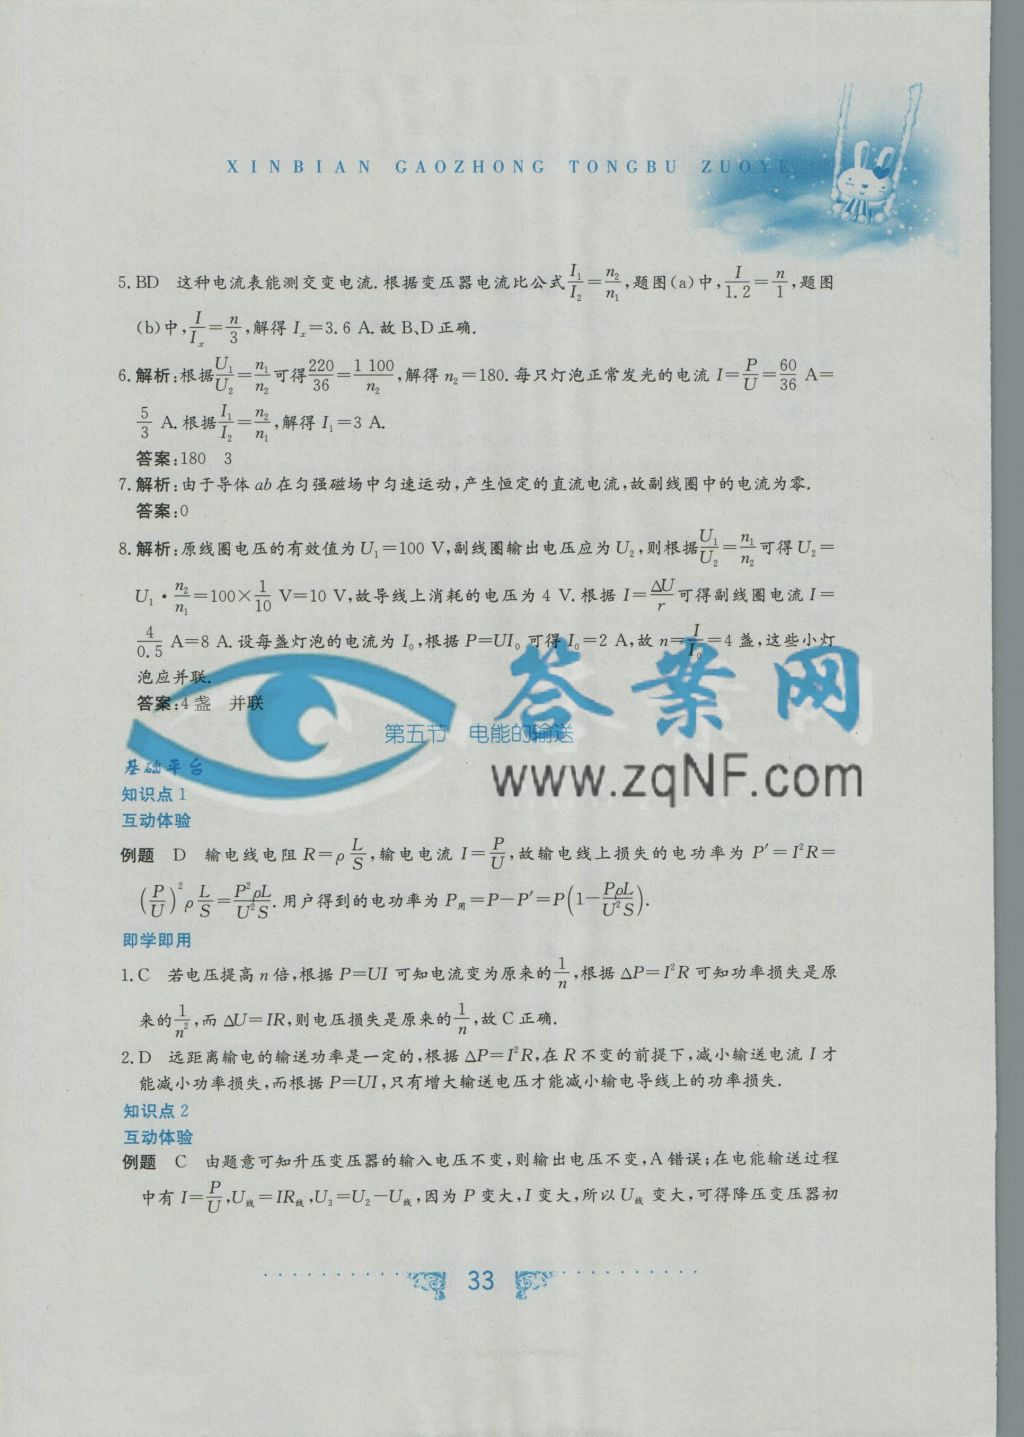 XINBIAN GAOZHONG TONGBU ZUOYE
5. BD 这种电流表能测交变电流.根据变压器电流比公式I₁/I₂=n₂/n₁,题图(a)中,I/1.2=n/1,题图
(b)中,I/Iₓ=n/3,解得Iₓ=3.6 A.故B、D正确.
6. 解析:根据U₁/U₂=n₁/n₂可得220/36=1 100/n₂,解得n₂=180.每只灯泡正常发光的电流I=P/U=60/36 A=
5/3 A.根据I₁/I₂=n₂/n₁,解得I₁=3 A.
答案:180 3
7. 解析:由于导体ab在匀强磁场中匀速运动,产生恒定的直流电流,故副线圈中的电流为零.
答案:0
8. 解析:原线圈电压的有效值为U₁=100 V,副线圈输出电压应为U₂,则根据U₁/U₂=n₁/n₂可得U₂=
U₁·n₂/n₁=100×1/10 V=10 V,故导线上消耗的电压为4 V.根据I=ΔU/r可得副线圈电流I=
4/0.5 A=8 A.设每盏灯泡的电流为I₀,根据P=UI₀可得I₀=2 A,故n=I/I₀=4盏,这些小灯
泡应并联.
答案:4盏 并联
答案网
www.zqNF.com
第五节 电能的输送
基础平台
知识点1
互动体验
例题 D 输电线电阻R=ρL/S,输电电流I=P/U,故输电线上损失的电功率为P′=I²R=
(P/U)²ρL/S=P²ρL/U²S.用户得到的电功率为P用=P−P′=P(1−PρL/U²S).
即学即用
1. C 若电压提高n倍,根据P=UI可知电流变为原来的1/n,根据ΔP=I²R可知功率损失是原
来的1/n²,而ΔU=IR,则电压损失是原来的1/n,故C正确.
2. D 远距离输电的输送功率是一定的,根据ΔP=I²R,在R不变的前提下,减小输送电流I才
能减小功率损失,而根据P=UI,只有增大输送电压才能减小输电导线上的功率损失.
知识点2
互动体验
例题 C 由题意可知升压变压器的输入电压不变,则输出电压不变,A错误;在电能输送过程
中有I=P/U,U线=IR线,U₃=U₂−U线,因为P变大,I变大,所以U线变大,可得降压变压器初
33